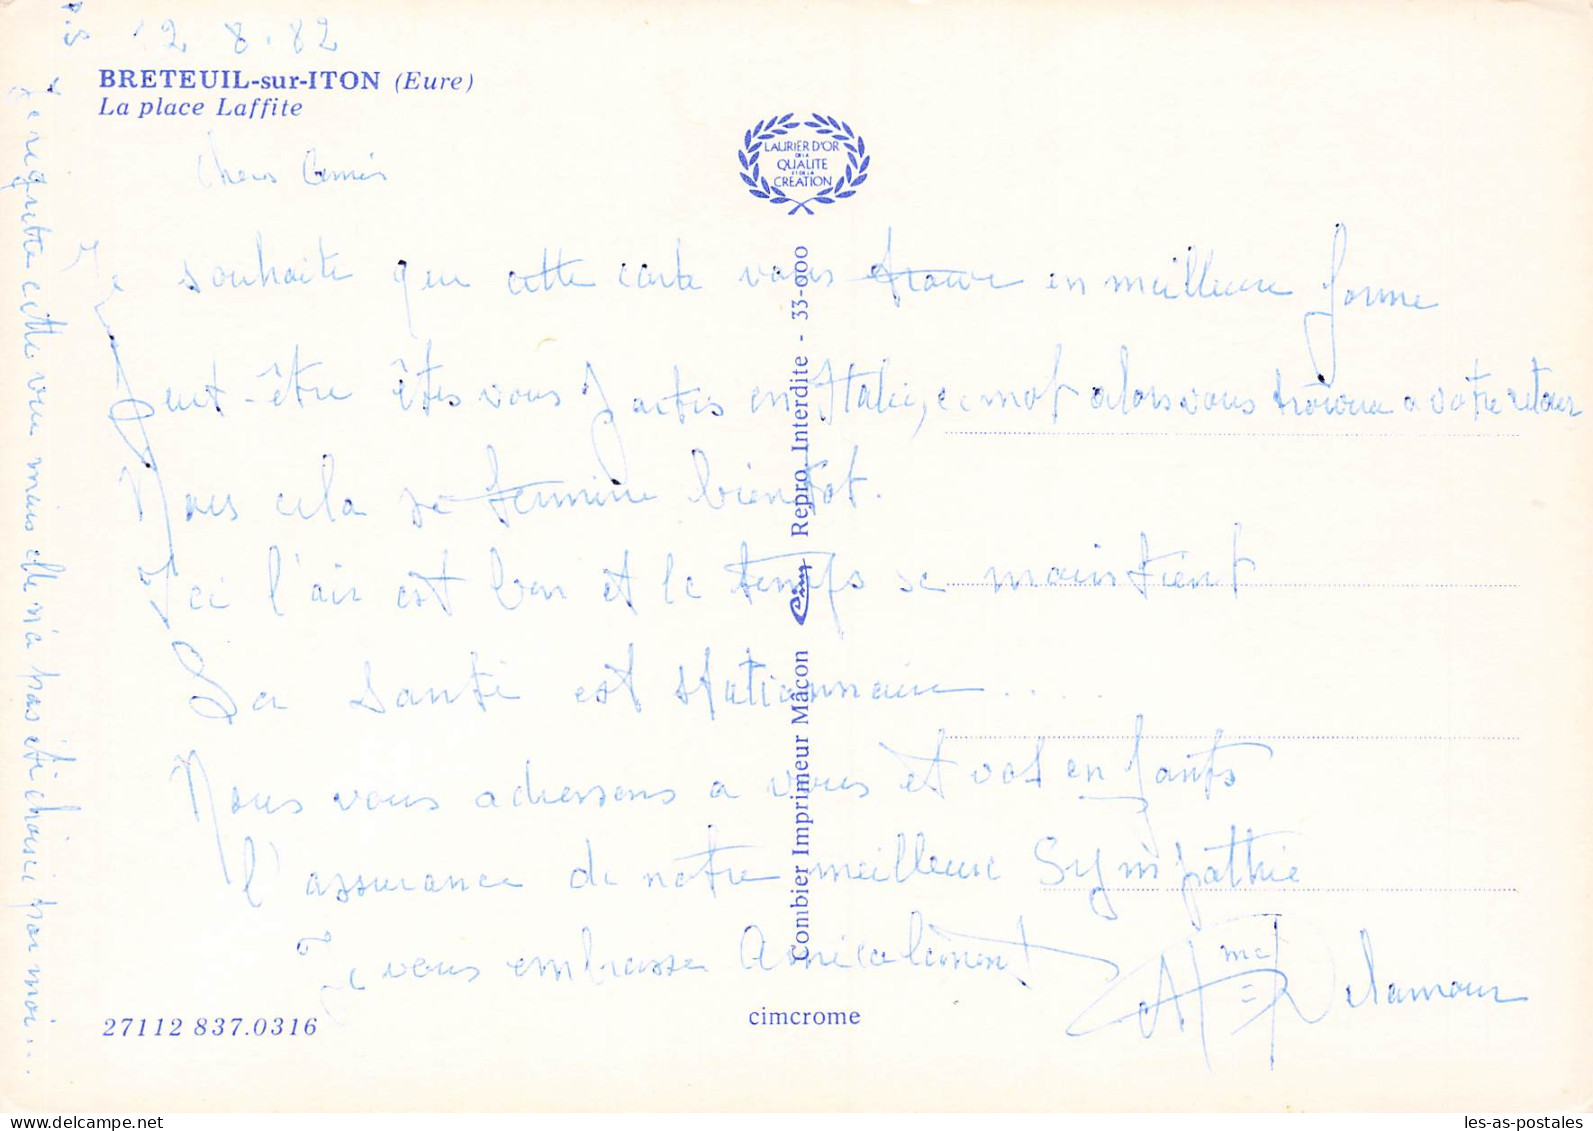 12 8.82
BRETEUIL-sur-ITON (Eure)
La place Laffite
LAURIER D'OR
DE LA
QUALITE
ET DE LA
CREATION
Chers Amis
Je souhaite que cette carte vous trouve en meilleure forme
Peut-être êtes vous partis en Italie, ce mot alors vous trouvera a votre retour
Mais cela se termine bientot.
Ici l'air est bon et le temps se maintient
La santé est stationnaire....
Nous vous adressons a vous et vos enfants
l'assurance de notre meilleure Sympathie
Je vous embrasse Amicalement
Delamour
P.S
Je regrette cette vue mais elle n'a pas été choisie par moi...
Combier Imprimeur Mâcon Cim Repro Interdite - 33-000
27112 837.0316
cimcrome
les-as-postales